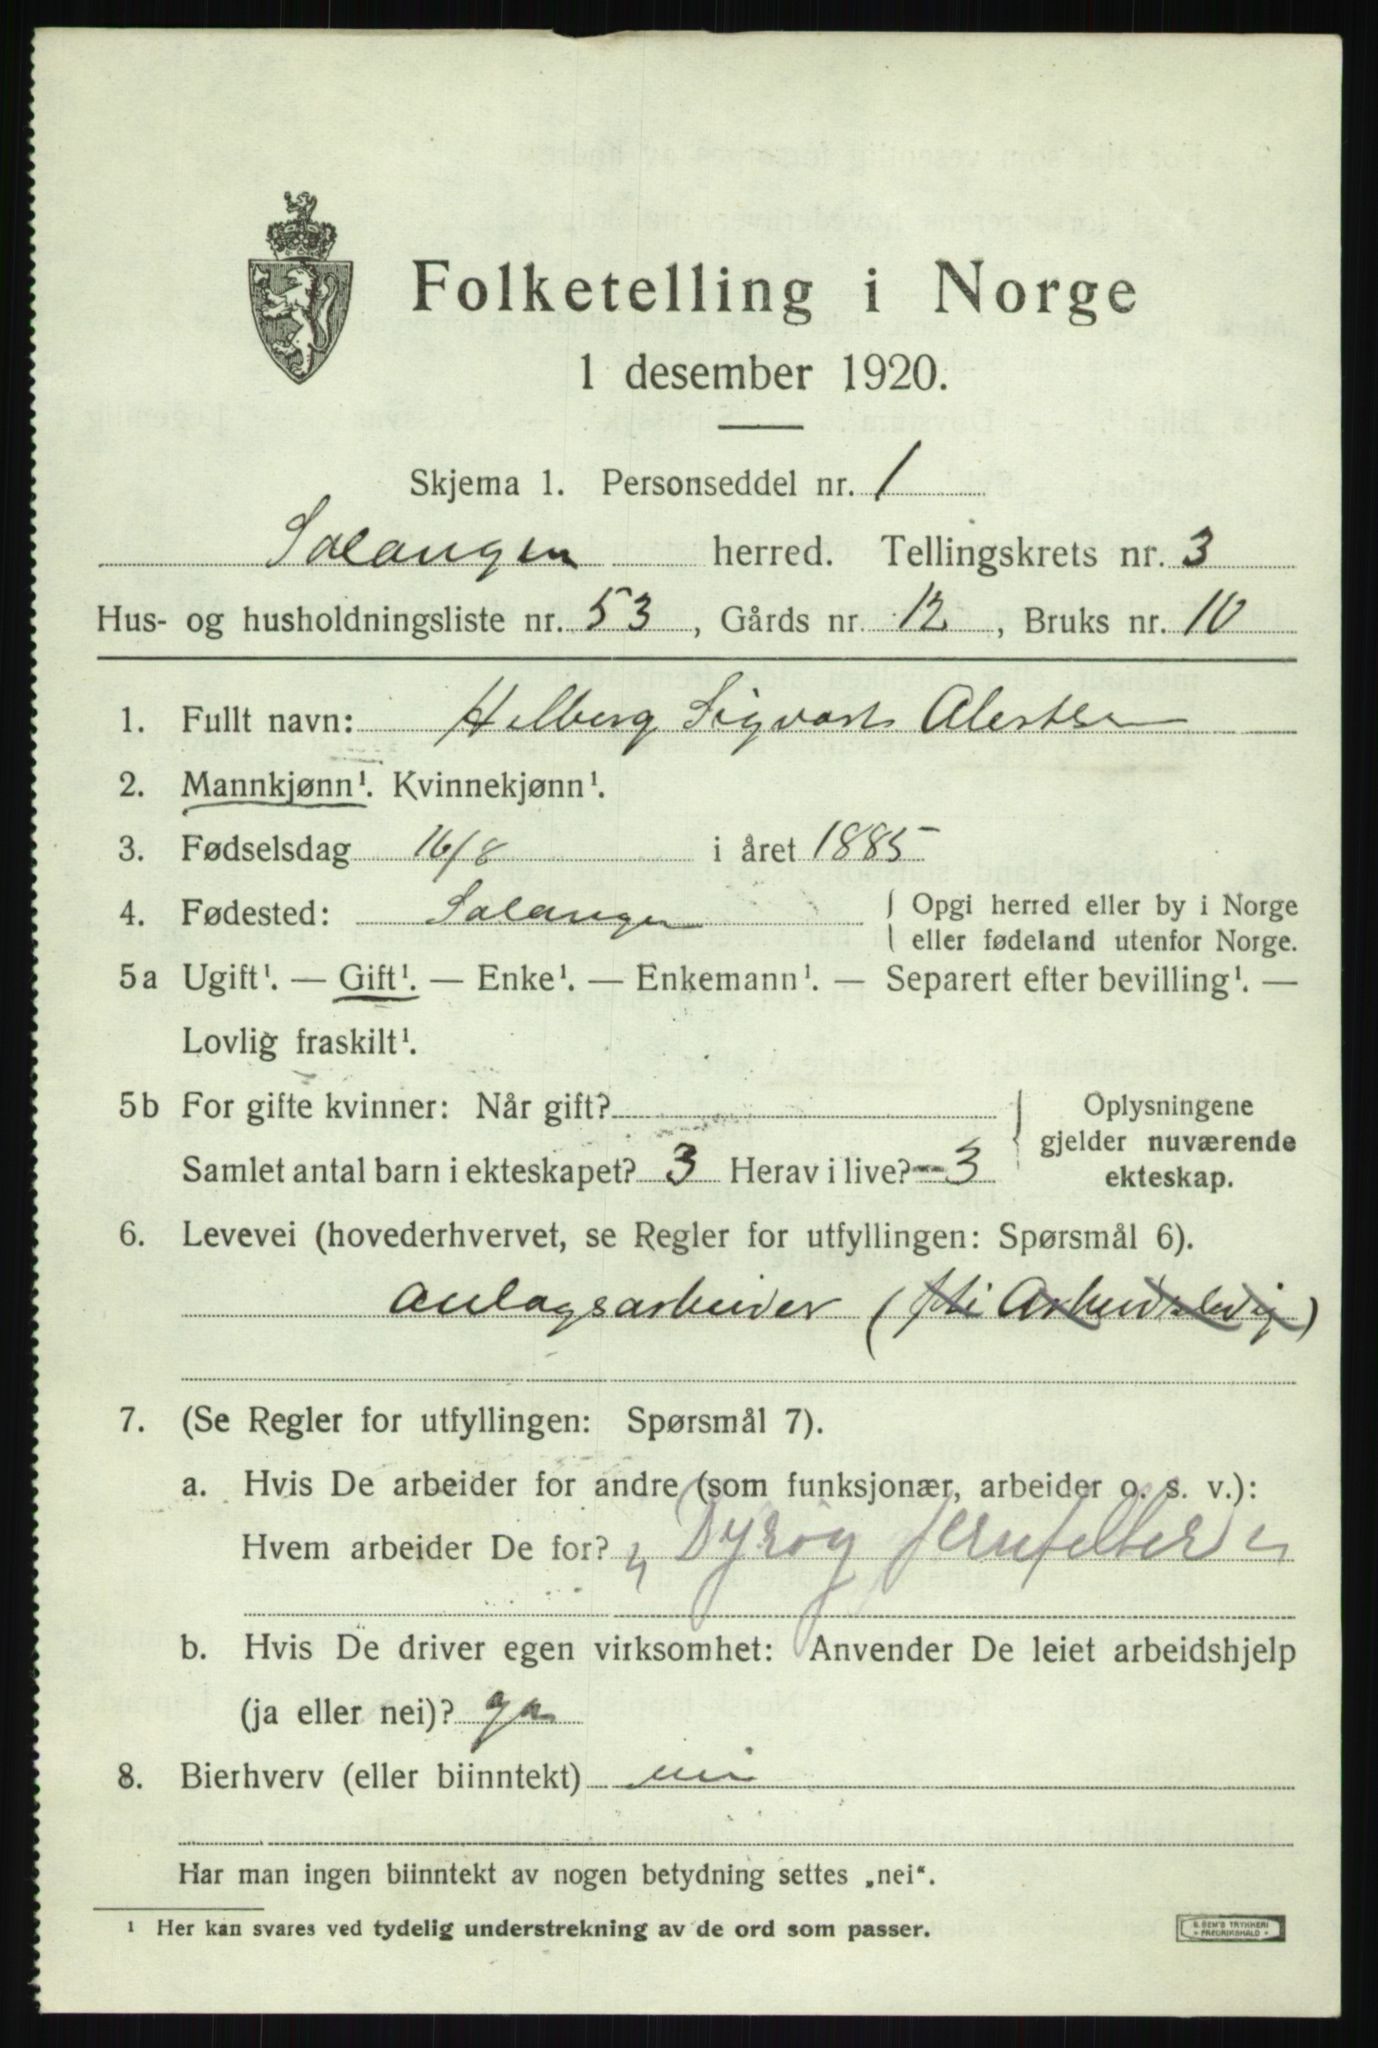 Folketelling i Norge
1 desember 1920.
Skjema 1. Personseddel nr. 1
Salangen herred. Tellingskrets nr. 3
Hus- og husholdningsliste nr. 53, Gårds nr. 12, Bruks nr. 10
1. Fullt navn: Helberg Sigvart
2. Mannkjønn¹. Kvinnekjønn¹.
3. Fødselsdag 16/8 i året 1885
4. Fødested: Salangen { Opgi herred eller by i Norge
eller fødeland utenfor Norge.
5a Ugift¹. — Gift¹. — Enke¹. — Enkemann¹. — Separert efter bevilling¹. —
Lovlig fraskilt¹.
5b For gifte kvinner: Når gift? } Oplysningene
gjelder nuværende
Samlet antal barn i ekteskapet? 3 Herav i live? 3 ekteskap.
6. Levevei (hovederhvervet, se Regler for utfyllingen: Spørsmål 6).
Anlagsarbeider (f.ti Arbeidsledig)
7. (Se Regler for utfyllingen: Spørsmål 7).
a. Hvis De arbeider for andre (som funksjonær, arbeider o. s. v.):
Hvem arbeider De for? „Dyrøy Jernfelter"
b. Hvis De driver egen virksomhet: Anvender De leiet arbeidshjelp
(ja eller nei)? ja
8. Bierhverv (eller biinntekt) nei
Har man ingen biinntekt av nogen betydning settes „nei“.
¹ Her kan svares ved tydelig understrekning av de ord som passer.
TRYKKERI
FREDRIKSHALD